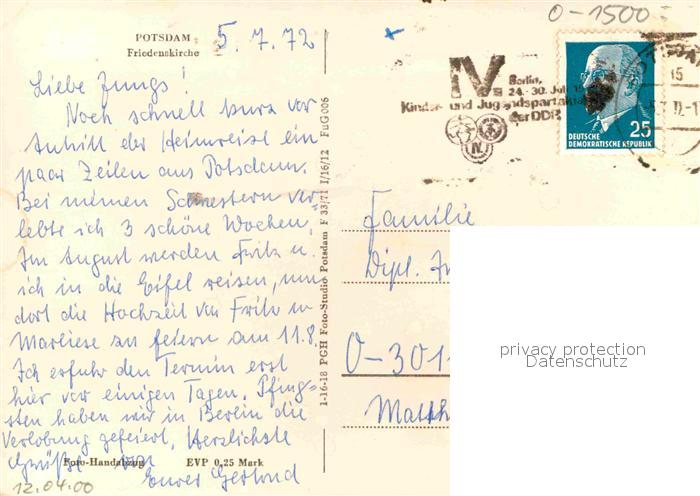 POTSDAM
Friedenskirche
5.7.72
Liebe Jungs!
Noch schnell kurz vor
Antritt der Heimreise ein
paar Zeilen aus Potsdam.
Bei meinen Schwestern ver-
lebte ich 3 schöne Wochen.
Im August werden Fritz u.
ich in die Eifel reisen, um
dort die Hochzeit von Fritz u
Marliese zu feiern am 11.8.
Ich erfuhr den Termin erst
hier vor einigen Tagen. Pfing-
sten haben wir in Berlin die
Verlobung gefeiert. Herzlichste
Grüße von
Eurer Gertrud
Foto-Handabzug EVP 0,25 Mark
12.04.00
1-16-18 PGH Foto-Studio Potsdam F 33/71 I/16/12 FuG 606
0-1500
IV.
Berlin,
24.-30. Juli
Kinder- und Jugendspartakiade
der DDR
IV
25
DEUTSCHE
DEMOKRATISCHE REPUBLIK
Familie
Dipl.
0-301
privacy protection
Datenschutz